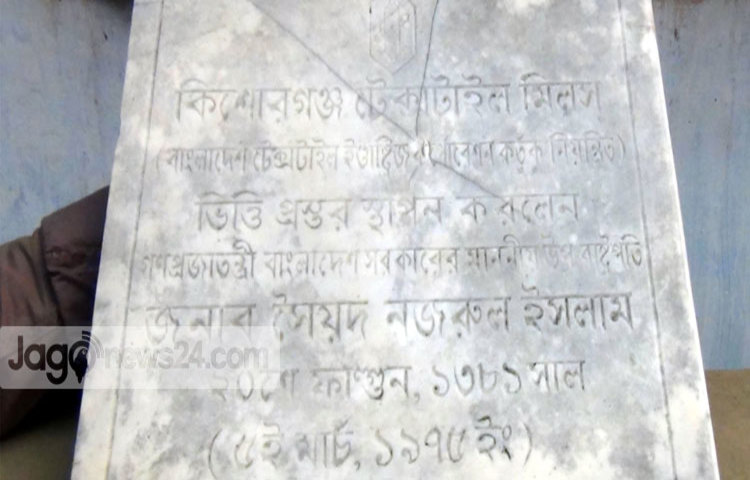 কিশোরগঞ্জ টেক্সটাইল মিলস
(বাংলাদেশ টেক্সটাইল ইণ্ডাষ্ট্রিজ কর্তৃক নিয়ন্ত্রিত)
ভিত্তি প্রস্তর স্থাপন করলেন
গণপ্রজাতন্ত্রী বাংলাদেশ সরকারের মাননীয় উপ রাষ্ট্রপতি
জনাব সৈয়দ নজরুল ইসলাম
২০শে ফাল্গুন, ১৩৮১ সাল
(৫ই মার্চ, ১৯৭৫ইং)
Jagonews24.com